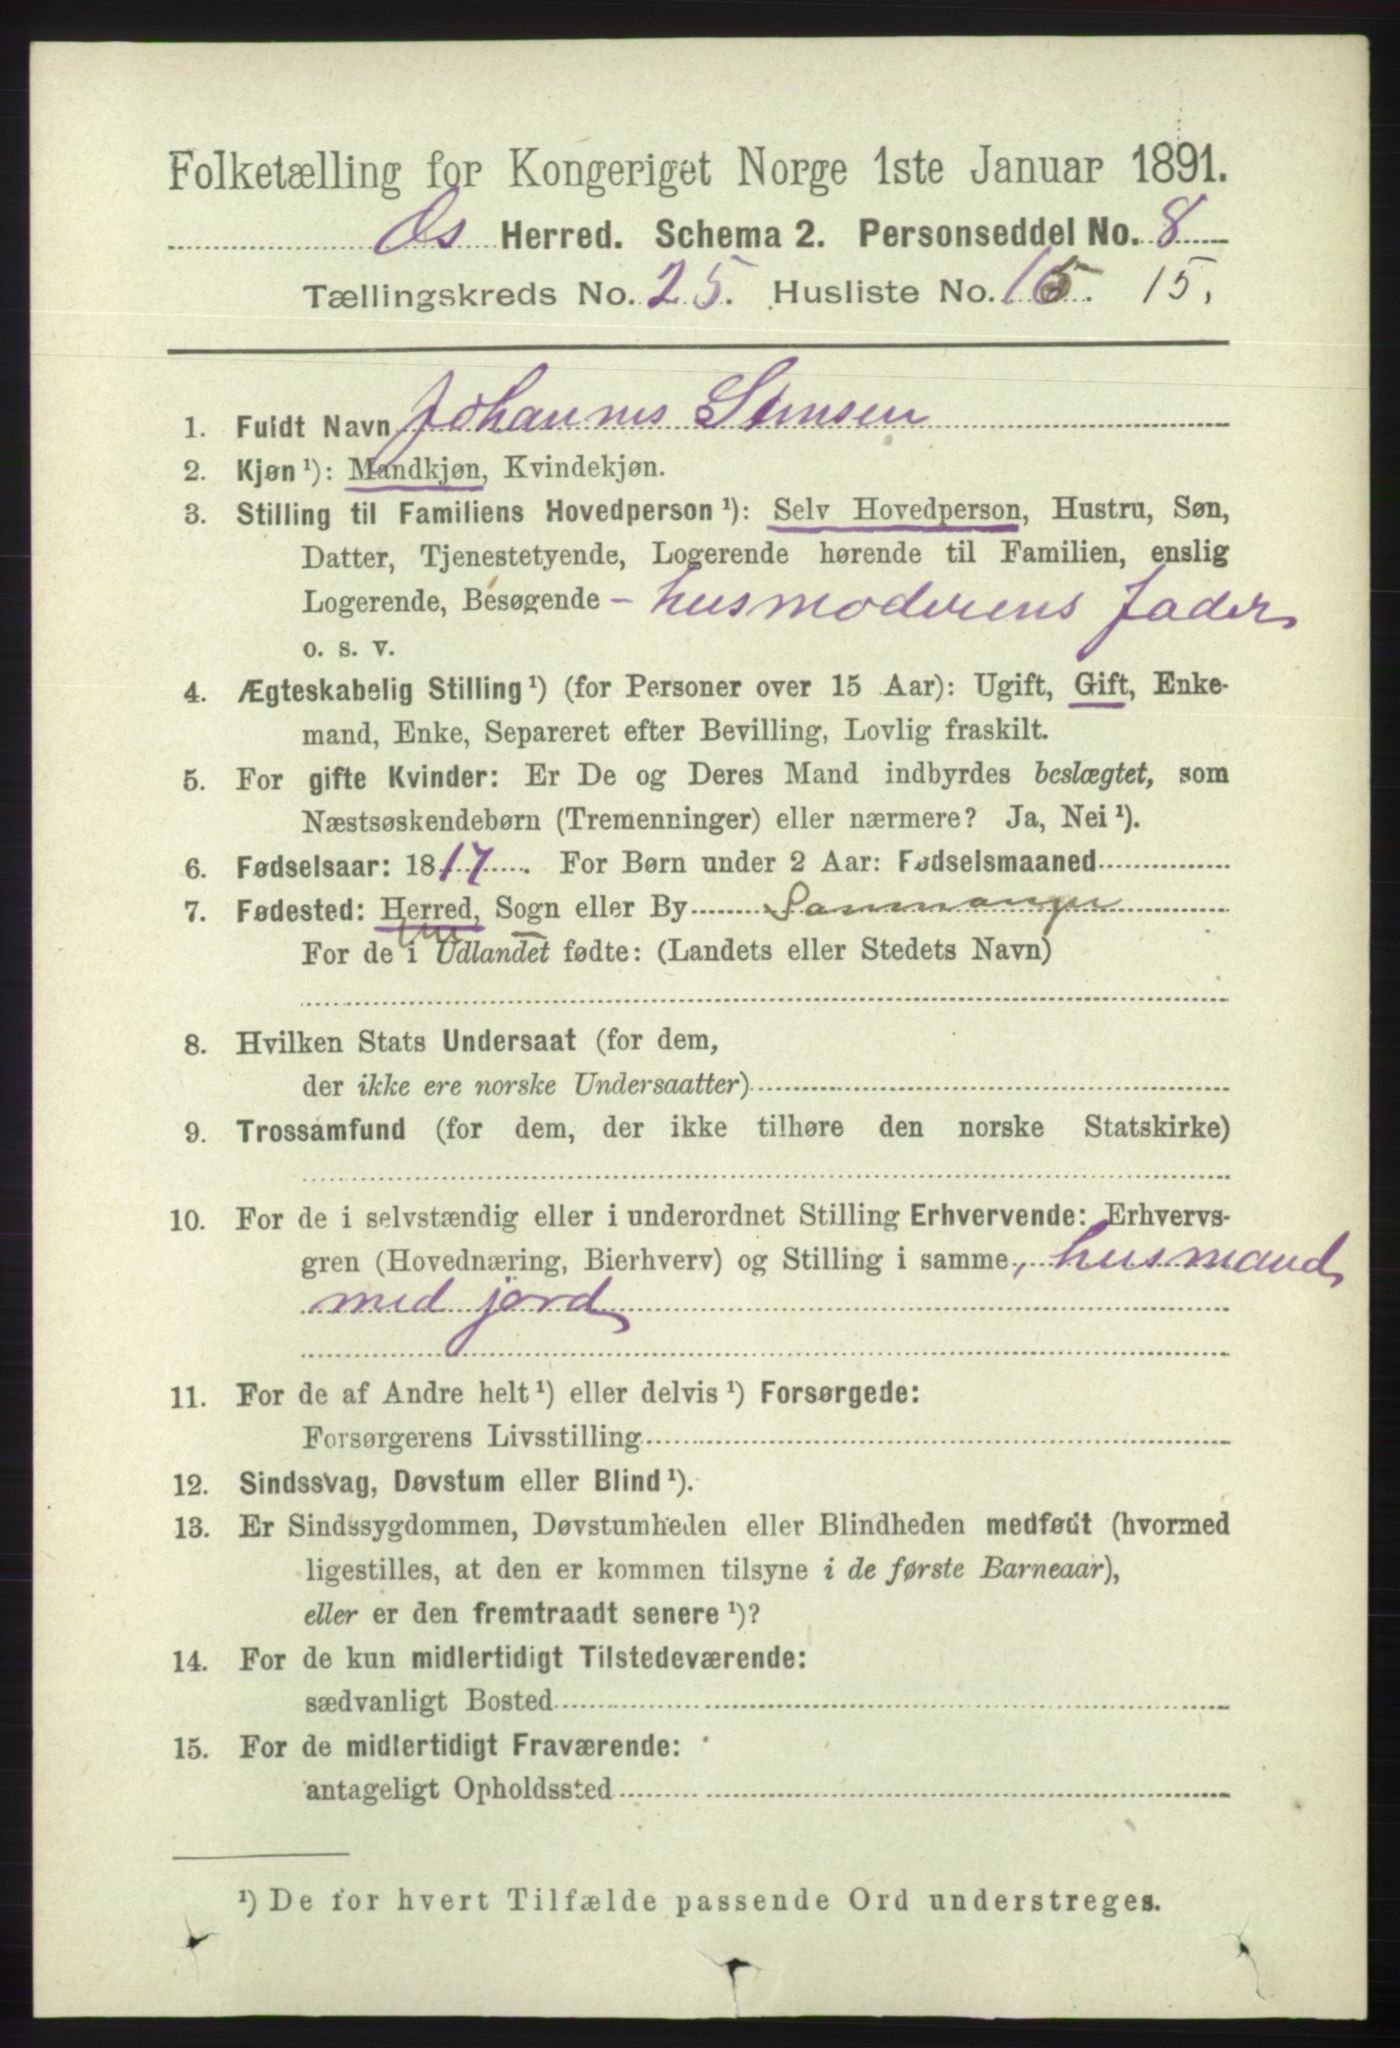 Folketælling for Kongeriget Norge 1ste Januar 1891.
Os Herred. Schema 2. Personseddel No. 8
Tællingskreds No. 25. Husliste No. 15. 15.
1. Fuldt Navn Johannes Simsen
2. Kjøn ¹): Mandkjøn, Kvindekjøn.
3. Stilling til Familiens Hovedperson ¹): Selv Hovedperson, Hustru, Søn,
Datter, Tjenestetyende, Logerende hørende til Familien, enslig
Logerende, Besøgende – husmoderens Fader
o. s. v.
4. Ægteskabelig Stilling ¹) (for Personer over 15 Aar): Ugift, Gift, Enke-
mand, Enke, Separeret efter Bevilling, Lovlig fraskilt.
5. For gifte Kvinder: Er De og Deres Mand indbyrdes beslægtet, som
Næstsøskendebørn (Tremenninger) eller nærmere? Ja, Nei ¹).
6. Fødselsaar: 1817. For Børn under 2 Aar: Fødselsmaaned
7. Fødested: Herred, Sogn eller By Sammanger
For de i Udlandet fødte: (Landets eller Stedets Navn)
8. Hvilken Stats Undersaat (for dem,
der ikke ere norske Undersaatter)
9. Trossamfund (for dem, der ikke tilhøre den norske Statskirke)
10. For de i selvstændig eller i underordnet Stilling Erhvervende: Erhvervs-
gren (Hovednæring, Bierhverv) og Stilling i samme, husmand
med jord
11. For de af Andre helt ¹) eller delvis ¹) Forsørgede:
Forsørgerens Livsstilling
12. Sindssvag, Døvstum eller Blind ¹).
13. Er Sindssygdommen, Døvstumheden eller Blindheden medfødt (hvormed
ligestilles, at den er kommen tilsyne i de første Barneaar),
eller er den fremtraadt senere ¹)?
14. For de kun midlertidigt Tilstedeværende:
sædvanligt Bosted
15. For de midlertidigt Fraværende:
antageligt Opholdssted
¹) De for hvert Tilfælde passende Ord understreges.